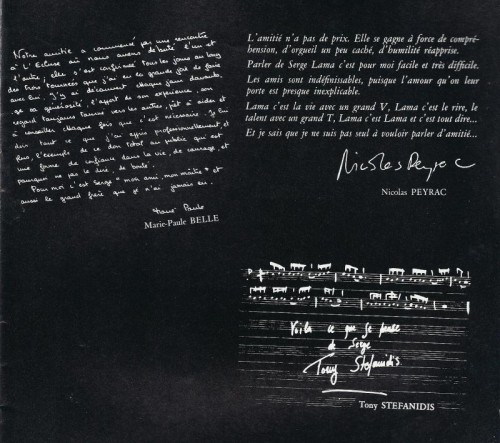 Notre amitié a commencé par une rencontre
à l'Ecluse où nous avons débuté l'un et
l'autre ; elle s'est confirmée tous les jours au long
des trois tournées que j'ai eu la grande joie de faire
avec lui. J'y ai découvert chaque jour davantage
sa générosité, l'apport de son expérience, son
regard toujours tourné vers les autres, prêt à aider et
à conseiller chaque fois que c'est nécessaire. Je lui
dois tout ce que j'ai appris professionnellement et
plus, l'exemple de ce don total au public qui est
une forme de confiance dans la vie, de courage, et
pourquoi ne pas le dire, de bonté.
Pour moi c'est Serge "mon ami, mon maître" et
aussi le grand frère que je n'ai jamais eu.
Marie Paule
Marie-Paule BELLE
L'amitié n'a pas de prix. Elle se gagne à force de compré-
hension, d'orgueil un peu caché, d'humilité réapprise.
Parler de Serge Lama c'est pour moi facile et très difficile.
Les amis sont indéfinissables, puisque l'amour qu'on leur
porte est presque inexplicable.
Lama c'est la vie avec un grand V, Lama c'est le rire, le
talent avec un grand T, Lama c'est Lama et c'est tout dire...
Et je sais que je ne suis pas seul à vouloir parler d'amitié...
Nicolas Peyrac
Nicolas PEYRAC
Voilà ce que je pense
de Serge
Tony Stefanidis
Tony STEFANIDIS